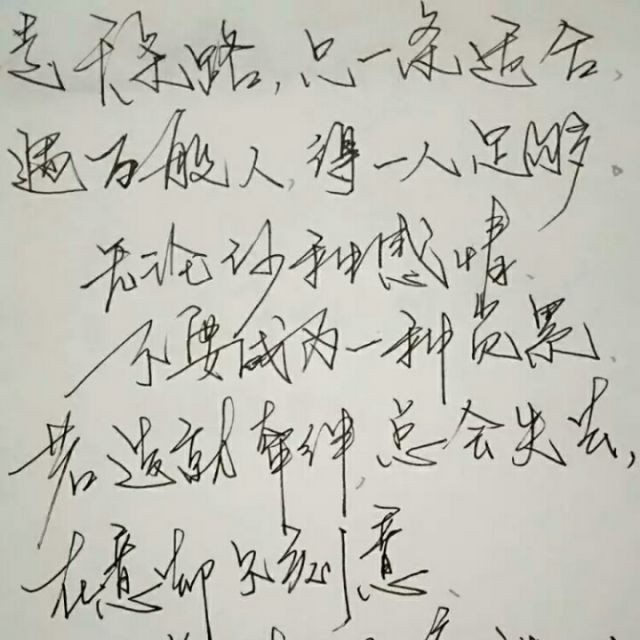 走千条路，只一条适合，
遇万般人，得一人足够。
无论哪种感情、
不要成为一种负累、
若造就牵绊，总会失去，
在意却不刻意、